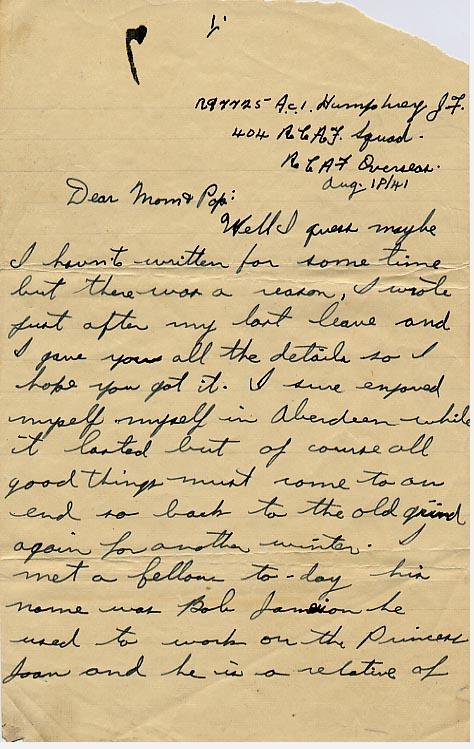 R97725 A.c.1. Humphrey J.F.
404 RCAF. Squad.
RCAF Overseas.
Aug. 18/41
Dear Mom & Pop:
Well I guess maybe
I havn't written for some time
but there was a reason, I wrote
just after my last leave and
I gave you all the details so I
hope you got it. I sure enjoyed
myself myself in Aberdeen while
it lasted but of course all
good things must come to an
end so back to the old grind
again for another winter. I
met a fellow to-day his
name was Bob Jamieson he
used to work on the Princess
Joan and he is a relative of